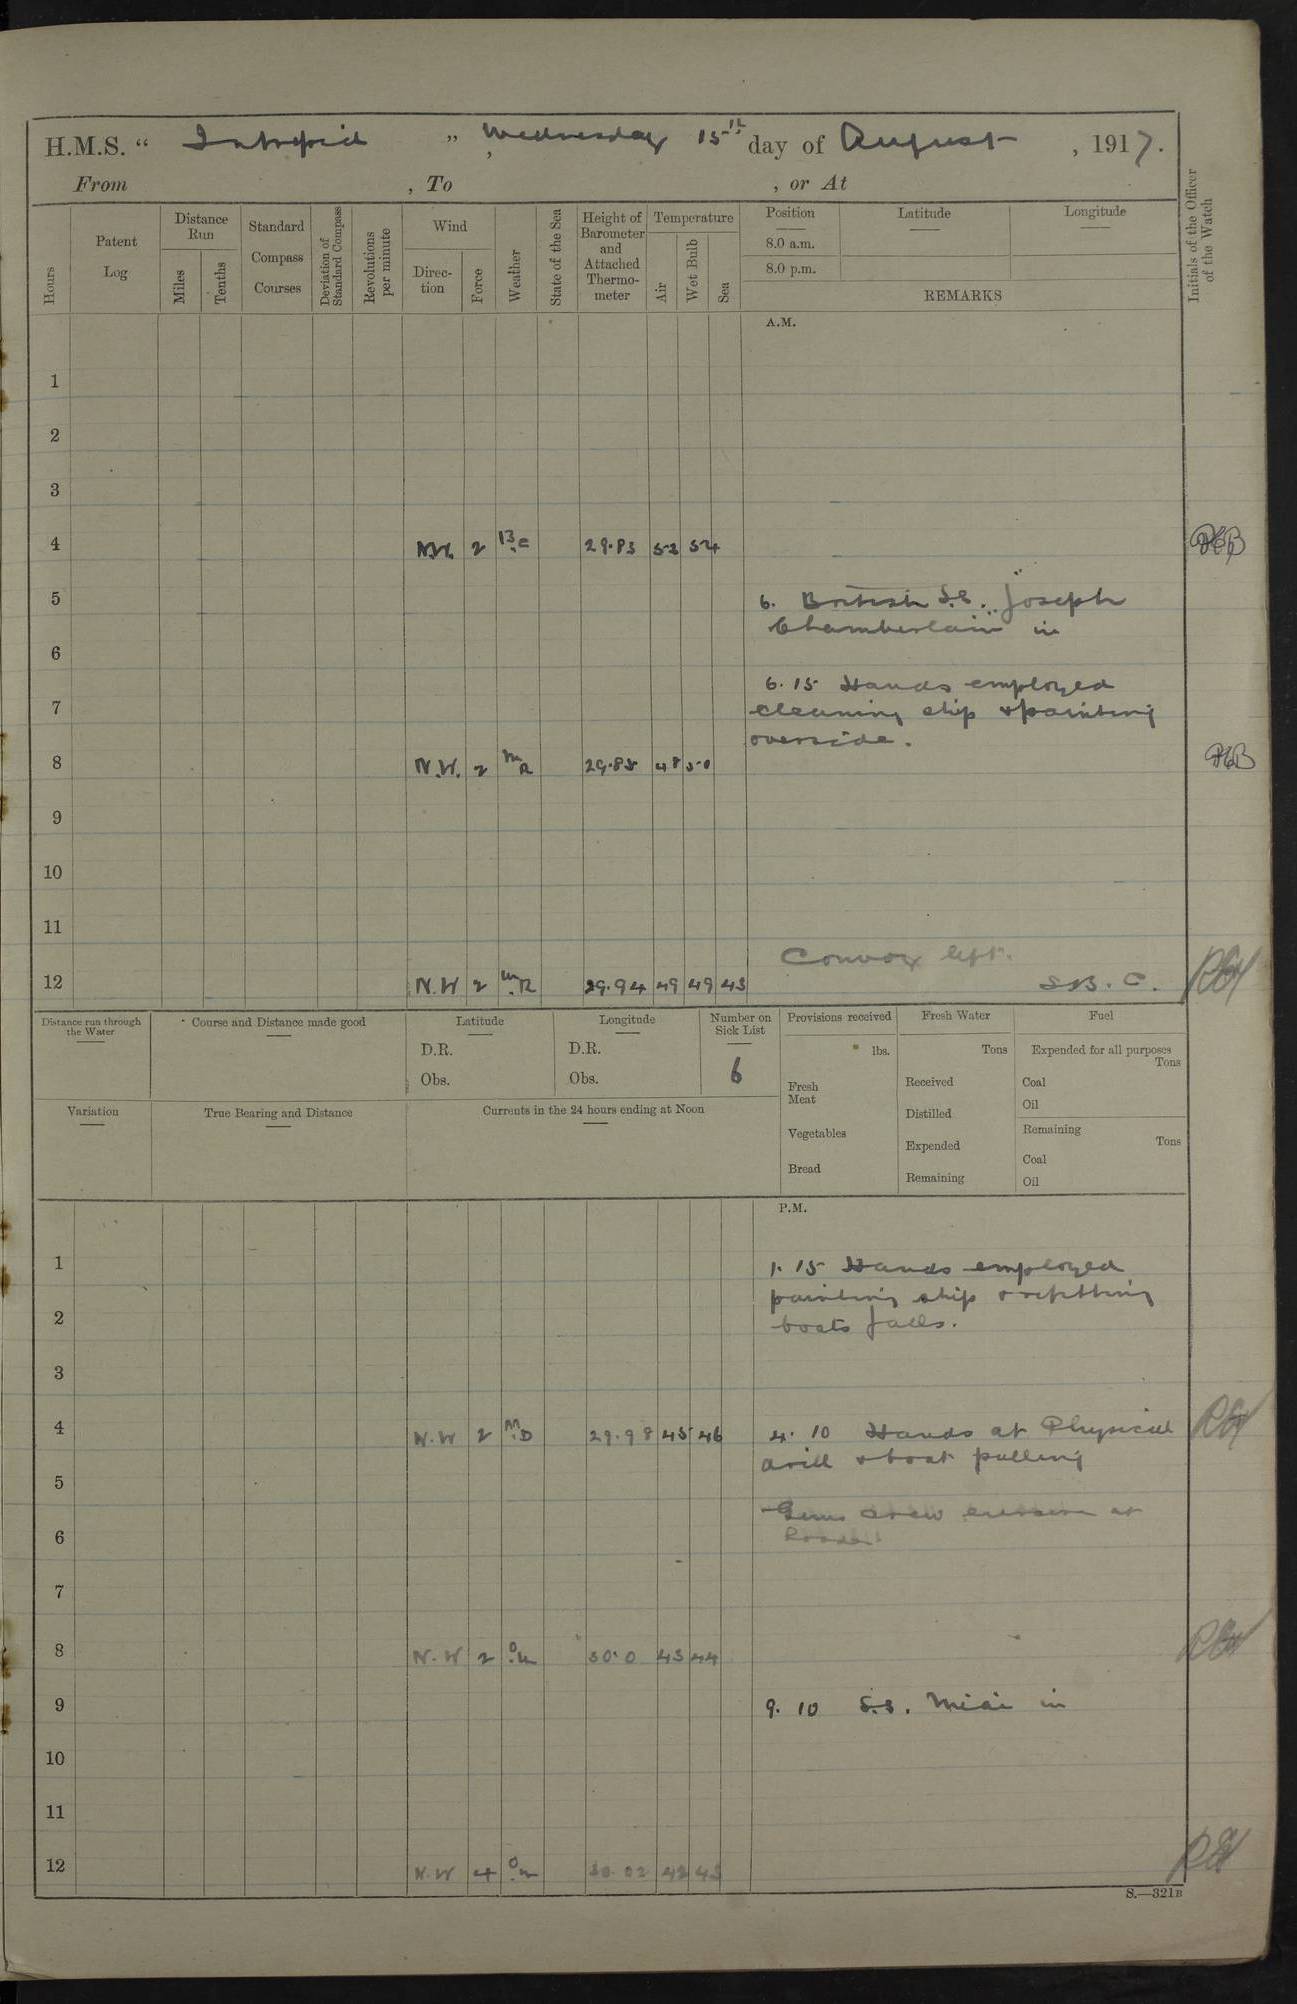 H.M.S. “ Intrepid ” , Wednesday 15th day of August , 1917.
From , To , or At
Hours
Patent Log
Distance Run
Miles
Tenths
Standard Compass Courses
Deviation of Standard Compass
Revolutions per minute
Wind
Direc-tion
Force
Weather
State of the Sea
Height of Barometer and Attached Thermo-meter
Temperature
Air
Wet Bulb
Sea
Position
8.0 a.m.
8.0 p.m.
Latitude
Longitude
REMARKS
Initials of the Officer of the Watch
A.M.
1
2
3
4 N.W. 2 B.C 29.83 52 54
5 6. British S.S. "Joseph
Chamberlain" in
6
6.15 Hands employed
7 cleaning ship & painting
overside.
8 N.W. 2 m R 29.85 48 50
9
10
11
Convoy left.
12 N.W 2 m.R 29.94 49 49 43 S.B.C.
Distance run through the Water
Course and Distance made good
Latitude
D.R.
Obs.
Longitude
D.R.
Obs.
Number on Sick List
6
Provisions received
lbs.
Fresh Meat
Vegetables
Bread
Fresh Water
Tons
Received
Distilled
Expended
Remaining
Fuel
Expended for all purposes
Tons
Coal
Oil
Remaining
Tons
Coal
Oil
Variation
True Bearing and Distance
Currents in the 24 hours ending at Noon
P.M.
1 1.15 Hands employed
painting ship & refitting
2 boats falls.
3
4 N.W 2 M.D 29.98 45 46 4.10 Hands at Physical
drill & boat pulling
5
Guns crew exercise at
6
7
8 N.W 2 O.m 30.0 43 44
9 9.10 S.S. in
10
11
12 N.W 4 O.m 30.02 42 43
S.—321B